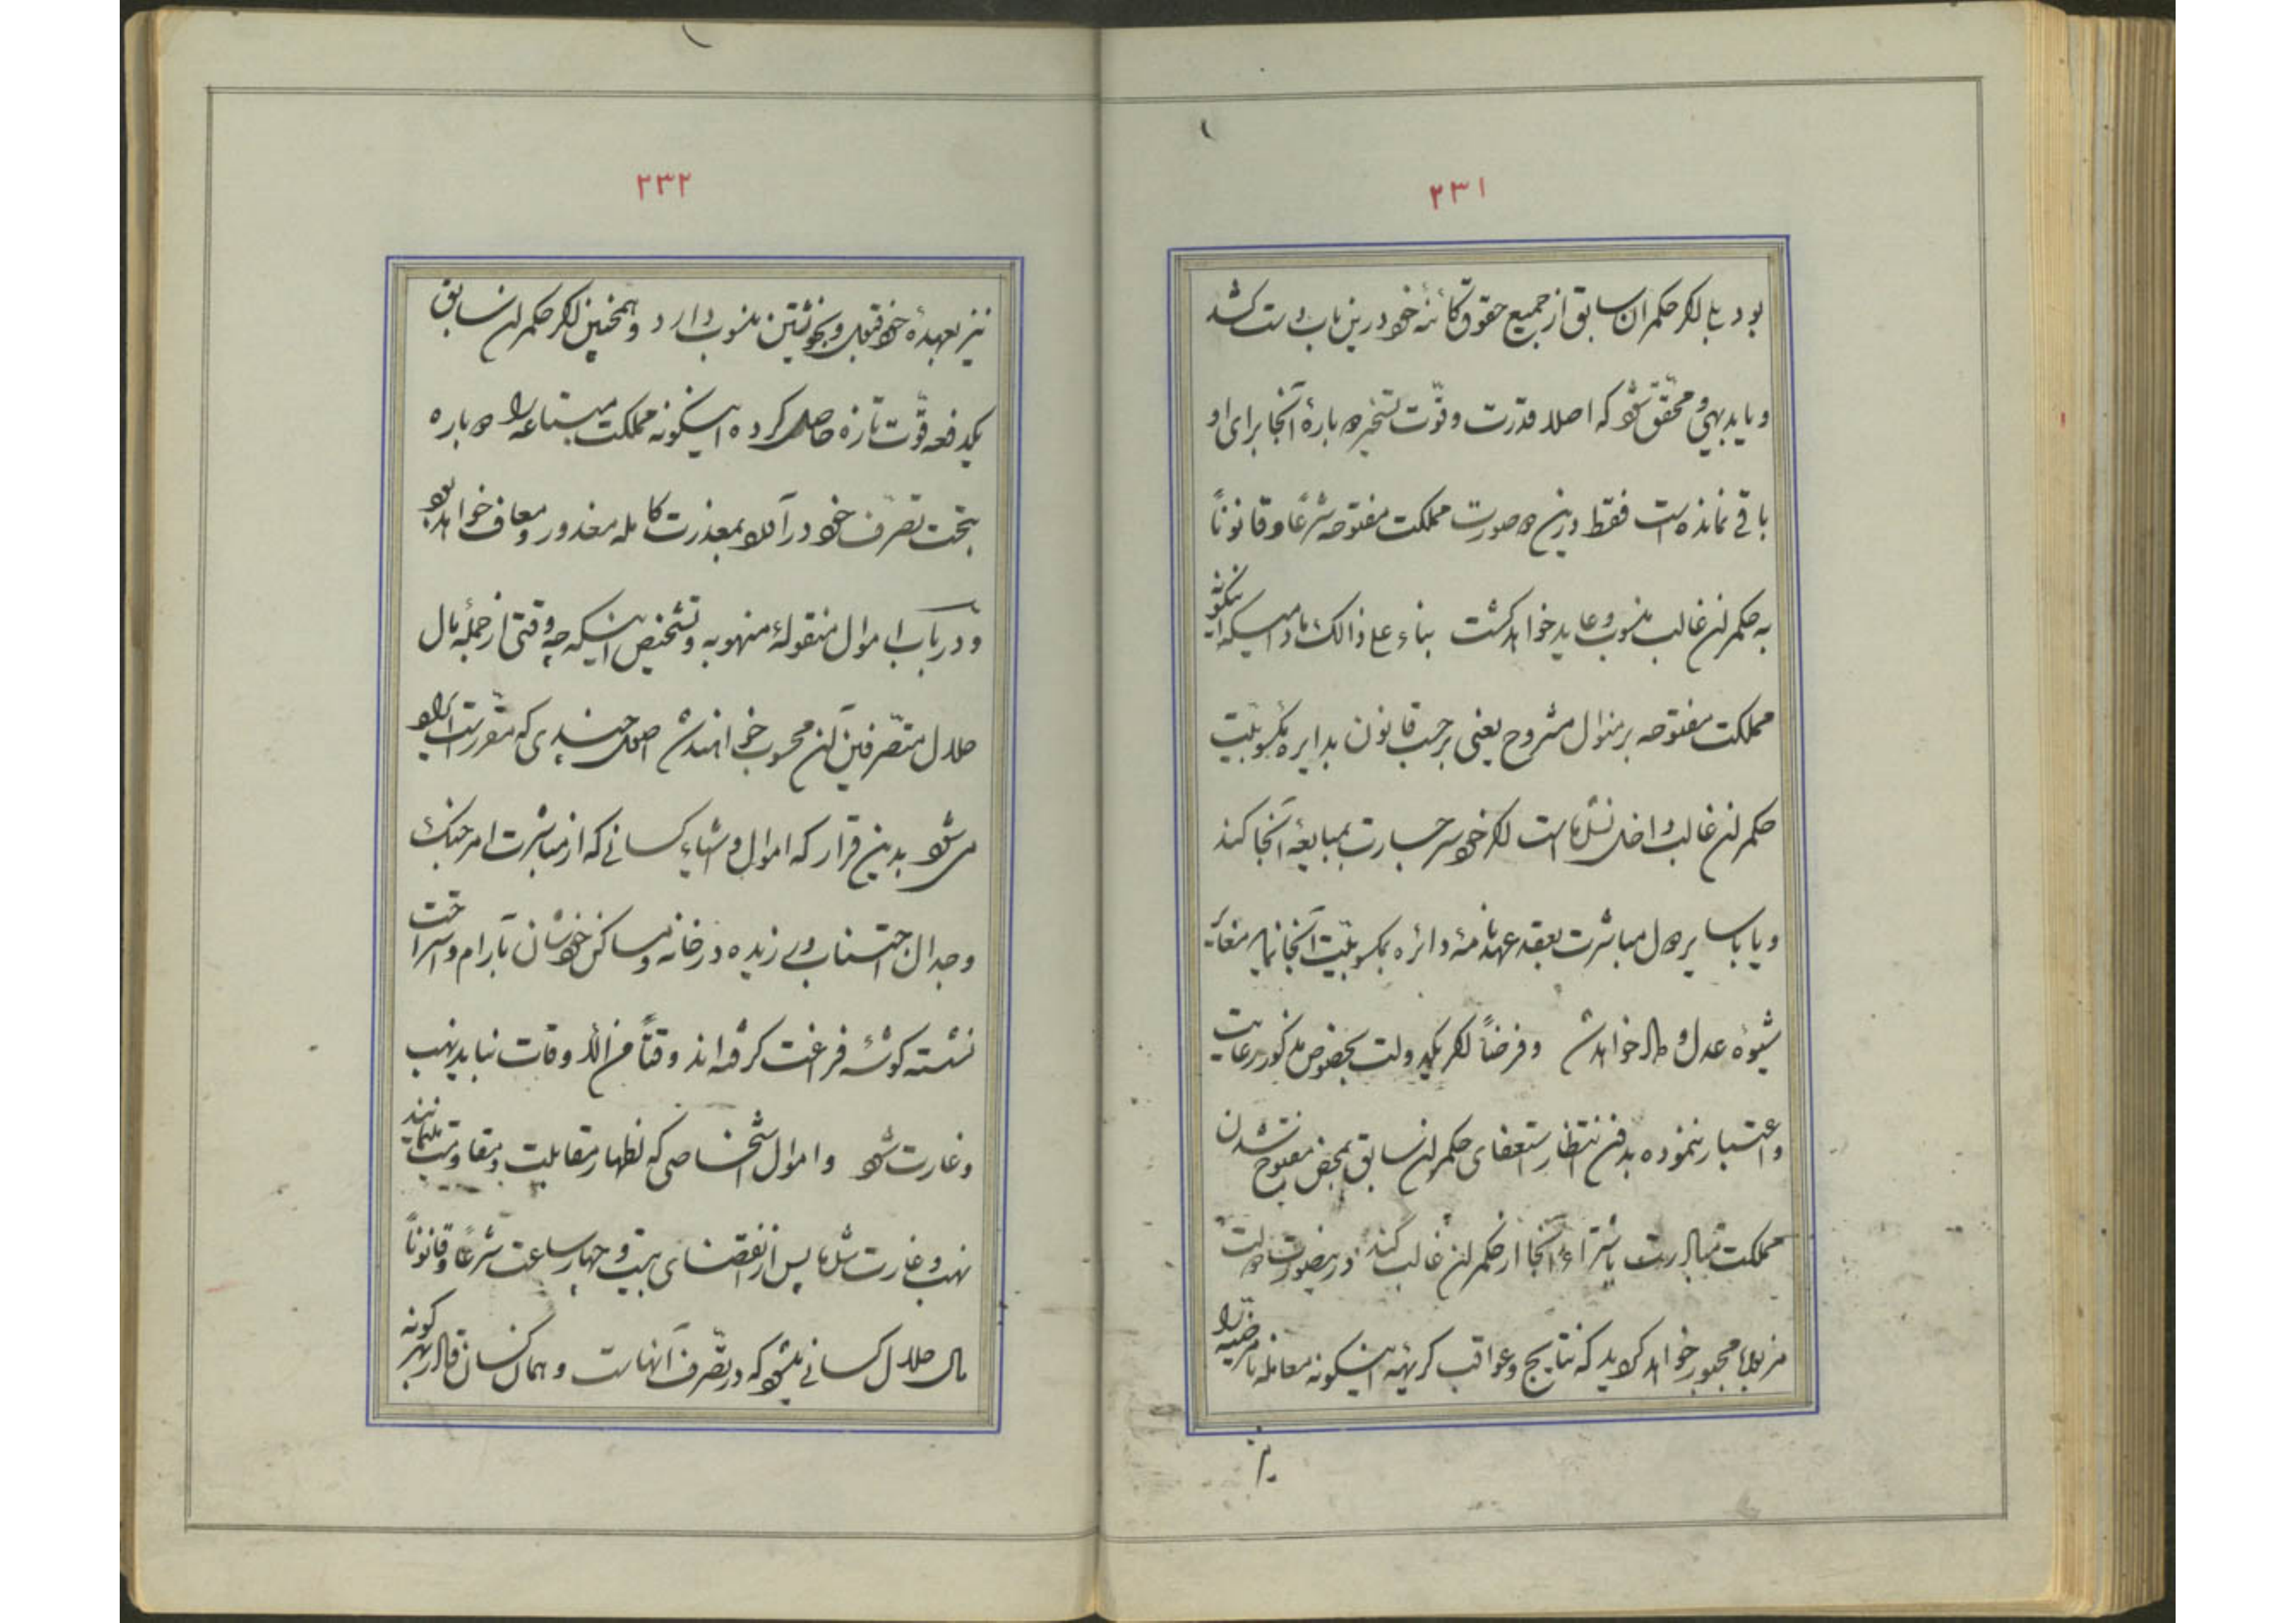 ۲۳۱
بود یا اگر حکمران سابق از جمیع حقوق کائنه خود درین باب دست کشد
و یا بدیهی و محقق شود که اصلا قدرت و قوّت تسخیر دوبارهٔ آنجا برای او
باقی نمانده است فقط درین دو صورت مملکت مفتوحه شرعًا و قانونًا
به حکمران غالب منسوب و عاید خواهد گشت بناء علی ذالک مادامیکه اینگونه
مملکت مفتوحه بر منوال مشروح یعنی برحسب قانون بدایره مکسوبیّت
حکمران غالب داخل نشده است اگر خود سر جسارت بمبایعهٔ آنجا کند
و یا با سایر دول مباشرت بعقد عهدنامهٔ دائره بمکسوبیّت آنجا نماید مغایر
شیوهٔ عدل و داد خواهد شد و فرضاً اگر یکدولت بخصوص مذکور رعایت
و اعتبار ننموده بدون انتظار استعفای حکمران سابق بمحض مفتوح شدن
مملکت مبادرت باشتراء آنجا از حکمران غالب کند درینصورت دولت
مزبوره مجبور خواهد گردید که نتایج و عواقب کریهه اینگونه معامله نامرضیه را
۲۳۲
نیز بعهدهٔ خود قبول و بخویشتن منسوب دارد و همچنین اگر حکمران سابق
یکدفعه قوّت تازه حاصل کرده اینگونه مملکت مبتاعه را دوباره
بتحت تصرّف خود در آورد بمعذرت کامله معذور و معاف خواهد بود
و در باب اموال منقولهٔ منهوبه و تشخیص اینکه چه وقتی از جملهٔ مال
حلال متصّرفین آن محسوب خواهند شد اصول جدیدی که مقرر است اجرا
می شود بدین قرار که اموال و اشیاء کسانی که از مباشرت امر جنگ
و جدال اجتناب ورزیده در خانه و مساکن خودشان بآرام و استراحت
نشسته گوشهٔ فراغت گرفته اند وقتًا من الاوقات نباید نهب
و غارت شود و اموال اشخاصی که اظهار مقابلیت و مقاومت مینمایند
نهب و غارت شده پس از انقضای بیست و چهار ساعت شرعًا و قانونًا
مال حلال کسانی میشود که در تصّرف آنهاست و همان کسان قادر بهر گونه